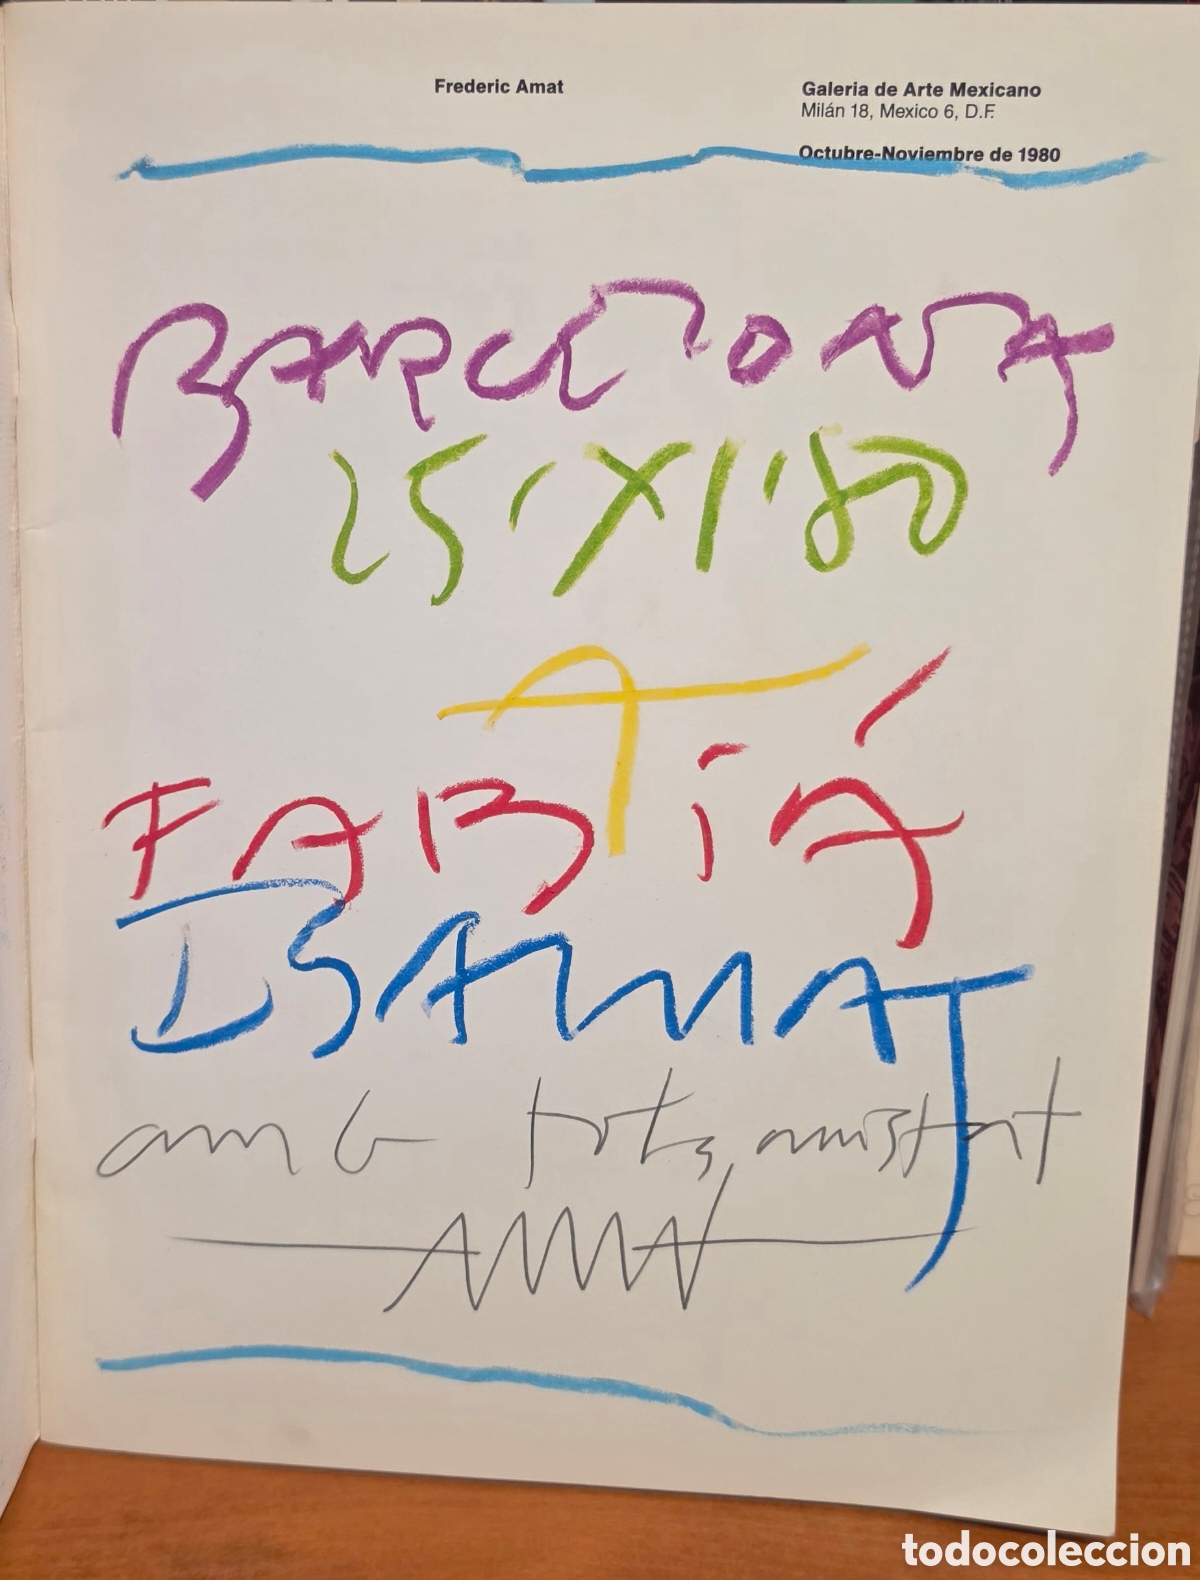 Frederic Amat
Galeria de Arte Mexicano
Milán 18, Mexico 6, D.F.
Octubre-Noviembre de 1980
BARCELONA
25'XI'80
A
FABIÁ
ISAMAT
amb tota, amistat
AMAT
todocoleccion